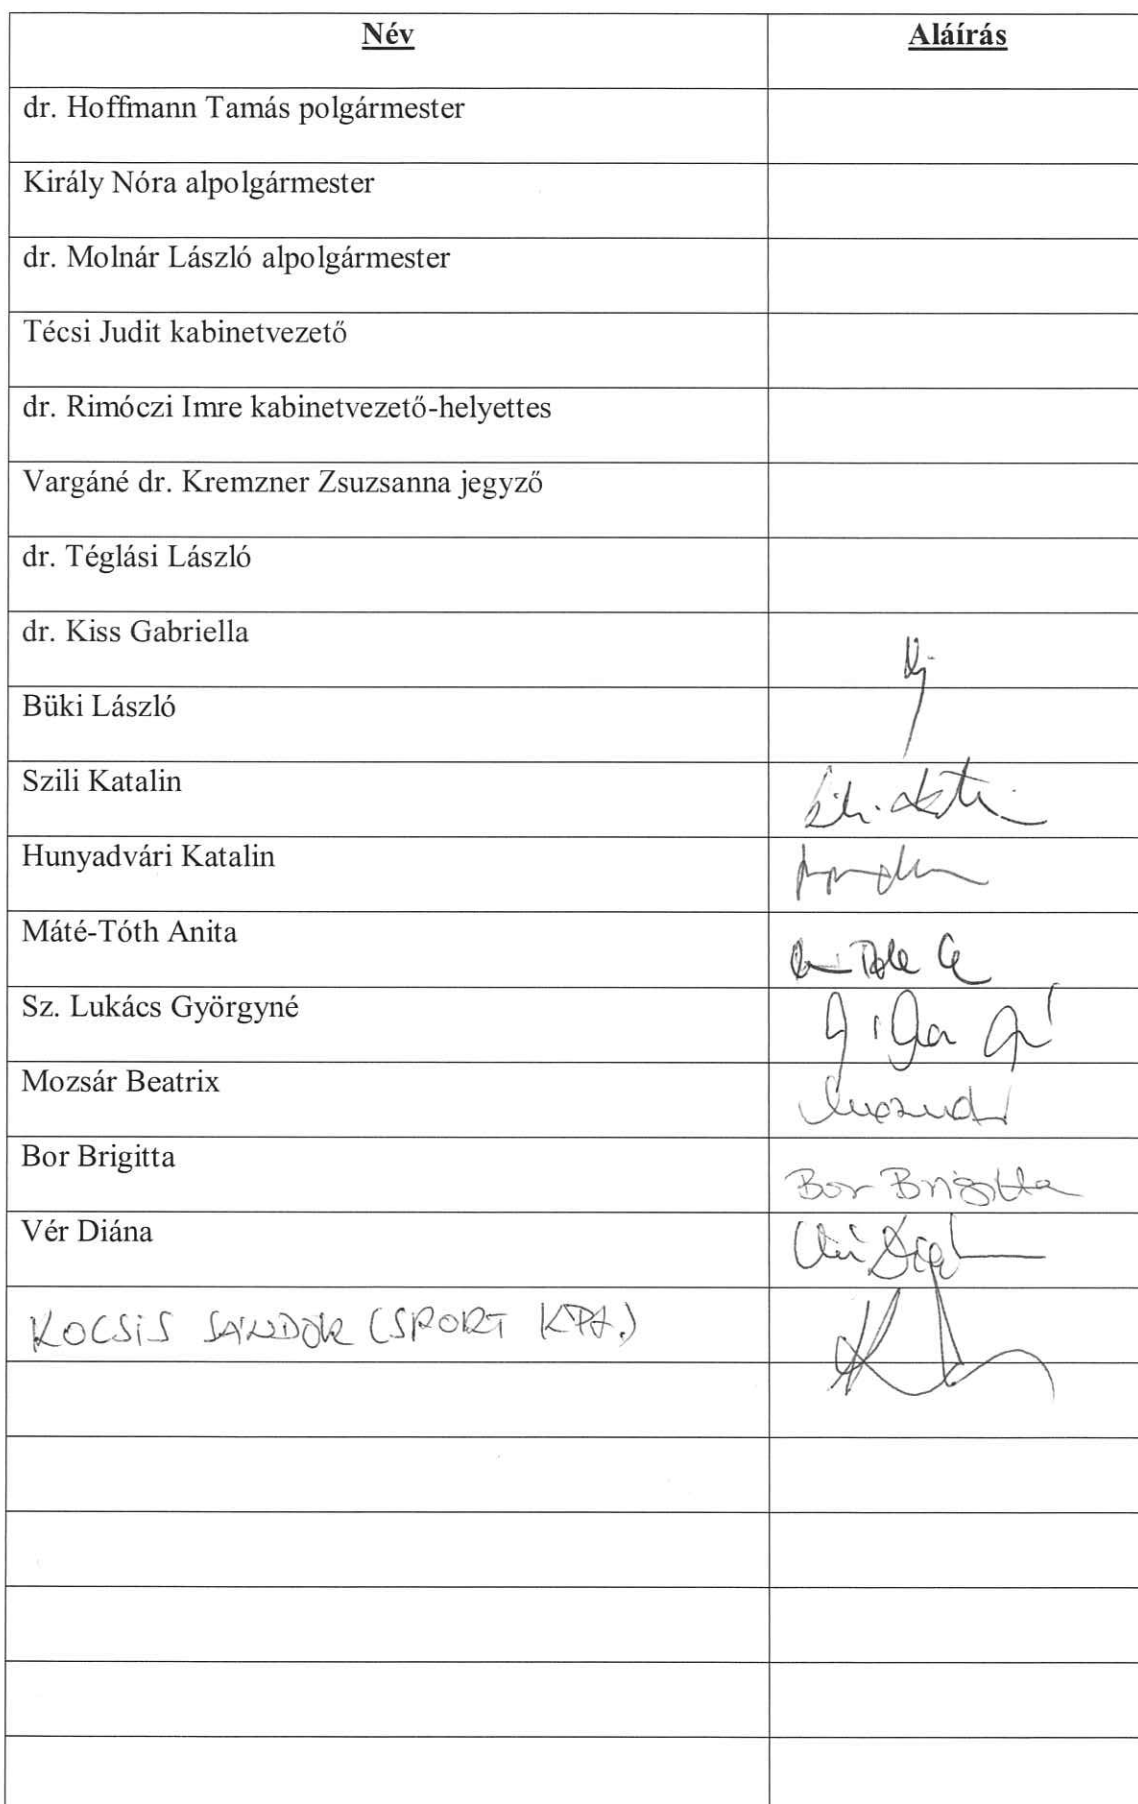 Név Aláírás
dr. Hoffmann Tamás polgármester
Király Nóra alpolgármester
dr. Molnár László alpolgármester
Técsi Judit kabinetvezető
dr. Rimóczi Imre kabinetvezető-helyettes
Vargáné dr. Kremzner Zsuzsanna jegyző
dr. Téglási László
dr. Kiss Gabriella
Büki László
Szili Katalin
Hunyadvári Katalin
Máté-Tóth Anita
Sz. Lukács Györgyné
Mozsár Beatrix
Bor Brigitta Bor Brigitta
Vér Diána
KOCSIS SÁNDOR (SPORT Kft.)